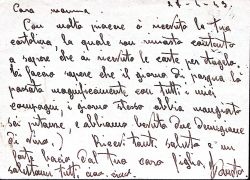 28-4-43.
Cara mamma.
Con molto piacere ò ricevuto la tua
cartolina, la quale son rimasto contento
a sapere che ai ricevuto le carte per
fo sapere che il giorno di pasqua lò
passata magnificamente con tutti i miei
compagni, i giorno stesso abbia mangiato
e abbiamo bevuto due
di vino,) Ricevi tanti saluti e un
forte bacio dal tuo caro figlio
salutami tutti